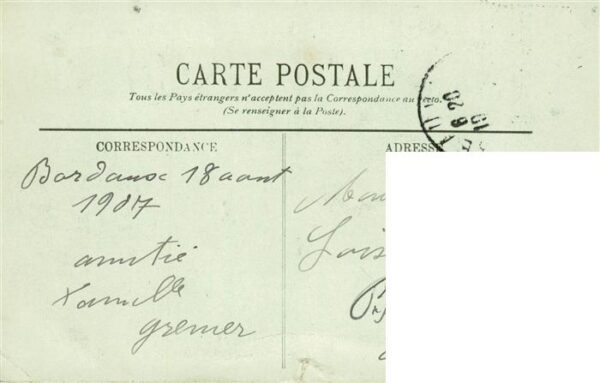 CARTE POSTALE
Tous les Pays étrangers n'acceptent pas la Correspondance au recto.
(Se renseigner à la Poste).
CORRESPONDANCE
Bordeaux 18 aout
1907
amitié
famille
gremer
ADRESSE